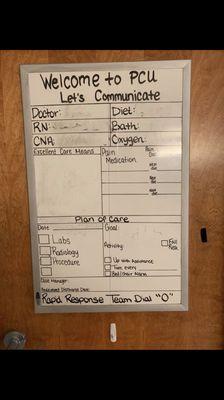 Welcome to PCU
Let's Communicate
Doctor: Diet:
RN: Bath:
CNA: Oxygen:
Excellent Care Means Pain
Medication
Plan of Care
Date Goal:
Labs
Radiology
Procedure
Activity: Fall
Risk
Up with Assistance
Turn every
Bed/Chair Alarm
Case Manager:
Anticipated Discharge Date:
Rapid Response Team Dial "0"